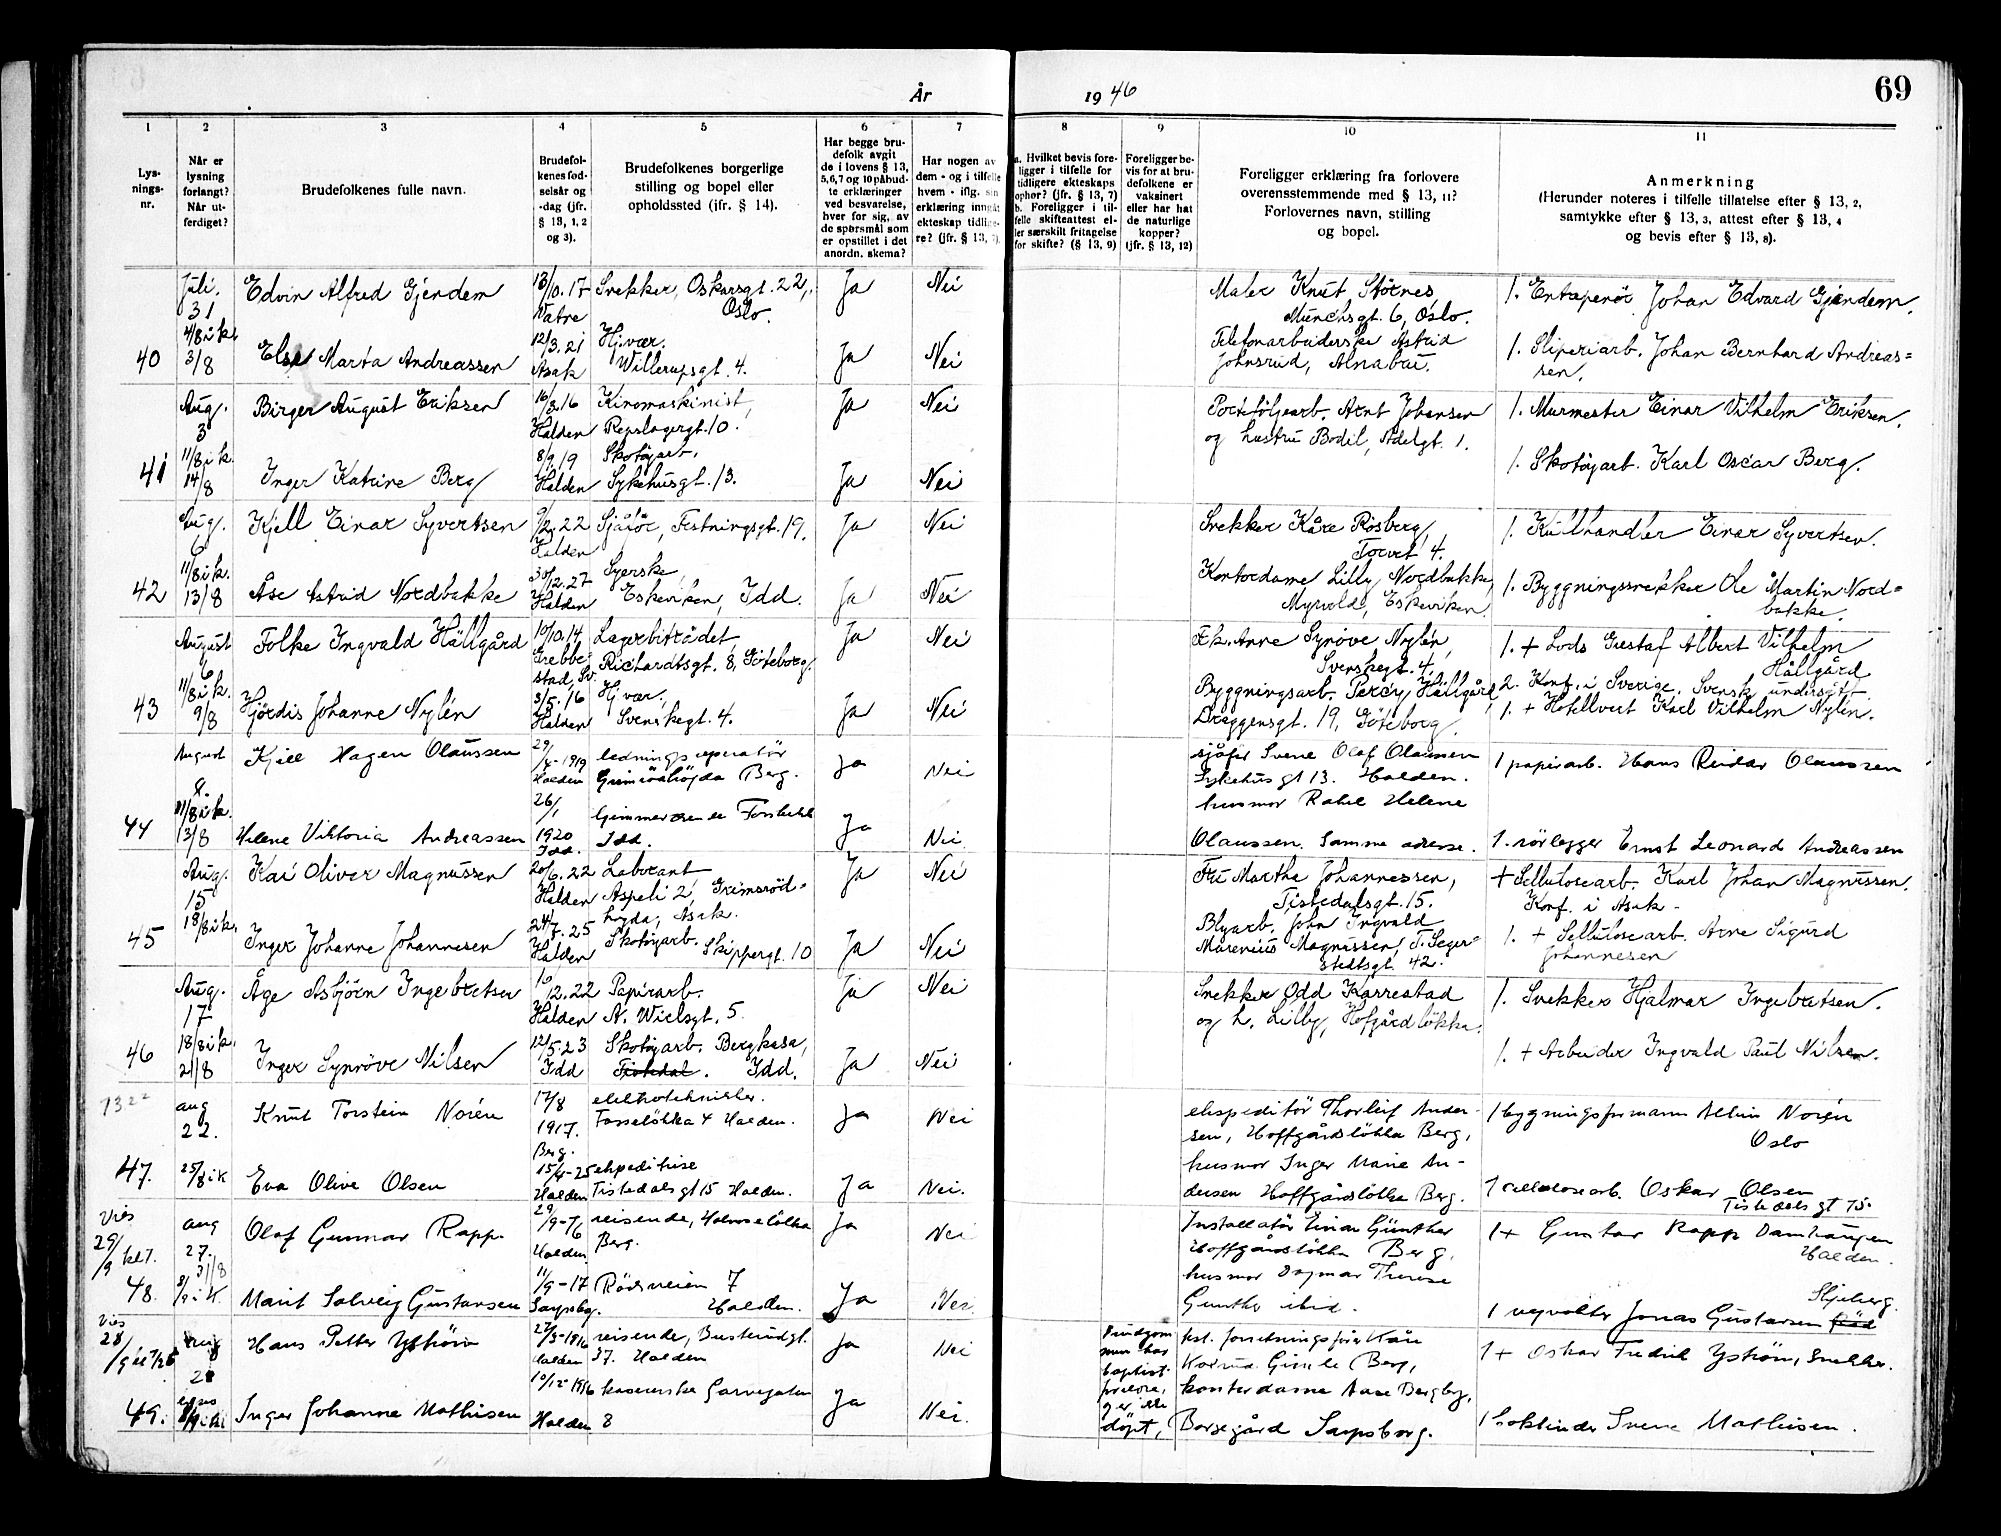 69
År 19 46
1 2 3 4 5 6 7 8 9 10 11
Lys-
nings-
nr.
Når er
lysning
forlangt?
Når ut-
ferdiget?
Brudefolkenes fulle navn.
Brudefol-
kenes fød-
selsår og
-dag (jfr.
§ 13, 1, 2
og 3).
Brudefolkenes borgerlige
stilling og bopel eller
opholdssted (jfr. § 14).
Har begge bru-
defolk avgit
de i lovens § 13,
5,6,7 og 10 påbud-
te erklæringer
ved besvarelse,
hver for sig, av
de spørsmål som
er opstillet i det
anordn. skema?
Har nogen av
dem - og i tilfelle
hvem - iflg. sin
erklæring inngåt
ekteskap tidlige-
re? (jfr. § 13, 7).
a. Hvilket bevis fore-
ligger i tilfelle for
tidligere ekteskaps
ophør? (jfr. § 13, 7)
b. Foreligger i til-
felle skifteattest el-
ler særskilt fritagelse
for skifte? (§ 13, 9)
Foreligger be-
vis for at bru-
defolkene er
vaksinert
eller har hat
de naturlige
kopper?
(jfr. § 13, 12)
Foreligger erklæring fra forlovere
overensstemmende med § 13, 11?
Forlovernes navn, stilling
og bopel.
Anmerkning
(Herunder noteres i tilfelle tillatelse efter § 13, 2,
samtykke efter § 13, 3, attest efter § 13, 4
og bevis efter § 13, 8).
Juli.
31
4/8 i k.
40 3/8
Edvin Alfred Gjendem
13/10.17
Vatre
Snekker, Oskarsgt. 22,
Oslo.
Ja Nei
Maler Knut Störnes,
Munchsgt. 6, Oslo.
1. Entrepenör Johan Edvard Gjendem.
Else Marta Andreassen
12/3.21
Asak
Hj.vær.
Willerupsgt. 4.
Ja Nei
Telefonarbeiderske Astrid
Johnsrud, Alnabru.
1. Sliperiarb. Johan Bernhard Andreas=
sen.
Aug.
3
11/8 i k.
41 14/8
Birger August Eriksen
16/3.16
Halden
Kinomaskinist,
Repslagergt. 10.
Ja Nei
Porteföljearb. Arnt Johansen
og hustru Bodil, Adelgt. 1.
1. Murmester Einar Vilhelm Eriksen.
Inger Katrine Berg
8/9.19
Halden
Skotöyarb.
Sykehusgt. 13.
Ja Nei
1. Skotöyarb. Karl Oscar Berg.
Aug.
6
11/8 i k.
42 13/8
Kjell Einar Syvertsen
9/2.22
Halden
Sjåför, Festningsgt. 19.
Ja Nei
Snekker Kåre Rösberg,
Torvet 4.
1. Kullhandler Einar Syvertsen.
Åse Astrid Nordbakke
30/12.27
Halden
Syerske
Eskeviken, Idd.
Ja Nei
Kontordame Lilly Nordbakke,
Myrvold, Eskeviken.
1. Byggningssnekker Ole Martin Nord=
bakke.
August
6
11/8 i k.
43 9/8
Folke Ingvald Hällgård
10/10.14
Grebbe-
stad, Sv.
Lagerbiträdet,
Richardtsgt. 8, Göteborg.
Ja Nei
Frk. Anne Synöve Nylén,
Svenskegt. 4,
1. + Lods Gustaf Albert Vilhelm
Hällgård
2. Konf. i Sverige. Svensk undersått.
Hjördis Johanne Nylén
3/5.16
Halden
Hj.vær.,
Svenskegt. 4.
Ja Nei
Byggningsarb. Percy Hällgård,
Dräggensgt. 19, Göteborg.
1. + Hotellvert Karl Vilhelm Nylén.
August
11/8 i k.
44 13/8
Kjell Hagen Olaussen
29/4-1919
Halden
ledningsoperatör
Grimsröhöjda Berg.
Ja Nei
sjåför Svenn Olaf Olaussen
Sykehusgt 13. Halden.
husmor Rakel Helene
Olaussen. Samme adresse.
1 papirarb. Hans Reidar Olaussen
Helene Viktoria Andreassen
26/1
1920
Idd.
Idd.
Ja Nei.
1. rörlegger Ernst Leonard Andreassen
Aug.
15
18/8 i k.
45
Kai Oliver Magnussen
20/6.22
Halden
Laborant
Aspeli 2, Grimsröd=
högda, Asak.
Ja Nei
Fru Martha Johannessen,
Tistedalsgt. 15.
+ Cellulosearb. Karl Johan Magnussen.
Konf. i Asak -
Inger Johanne Johannesen
24/7.25
Halden
Skotöyarb.
Skippergt. 10
Ja Nei
Blyarb. John Ingvald
Marenius Magnussen, T. Seger=
stedtsgt. 42.
1. + Cellulosearb. Arne Sigurd
Johannesen
Aug.
17
18/8 i k.
46 21/8
Åge Asbjörn Ingebretsen
10/12.22
Halden
Papirarb.
A. Wielsgt. 5.
Ja Nei
Snekker Odd Karrestad
og h. Lilly, Hofgårdlökka.
1. Snekker Hjalmar Ingebretsen.
Inger Synnöve Nilsen
12/5.23
Idd
Skotöyarb. Bergkasa,
Tistedal. Idd.
Ja Nei
1. + Arbeider Ingvald Paul Nilsen.
aug
22.
25/8 i k
47.
Knut Torstein Norén
17/8
1917.
Berg.
elektrotekniker.
Fosselökka 4 Halden.
Ja Nei
ekspeditör Thorleif Ander-
sen, Hoffgårdslökka Berg,
husmor Inger Marie An-
dersen Hoffgårdslökka Berg.
1 bygningsformann Albin Norén
Oslo
Eva Olive Olsen
15/4-25
Halden
ekspeditrise
Tistedalsgt 15 Halden.
Ja Nei.
1 cellulosearb. Oskar Olsen
Tistedalsgt 15.
Vies
29/9 kl 7.
aug
27.
31/8
8/9 i k.
48.
Olaf Gunnar Rapp.
29/9-76
Halden
reisende,
Berg.
Ja Nei
Installatör Einar Günther
Hoffgårdslökka Berg,
husmor Dagmar Therese
Gunther ibid.
1 + Gustav Rapp Damhaugen
Halden.
Marit Solveig Gustavsen
11/9-17
Sarpsbg.
Rödsveien 7
Halden.
Ja Nei.
Skjeberg.
1 veivokter Jonas Gustavsen
Vies
28/9
aug
28
49.
Hans Petter Yström
27/3-1916
Halden
reisende, Buskrudgt.
37. Halden
Ja Nei
Brudgom
men har
baptist-
foreldre,
er ikke
döpt,
Gimle Berg,
kontordame Aase Bergby,
Borgegård Sarpsborg.
1 + Oskar Fredrik Yström, Snekker.
Inger Johanne Mathisen
10/12-1916
Halden
kassererske Garvergaten
8
Ja Nei.
1 bokbinder Svenn Mathisen.